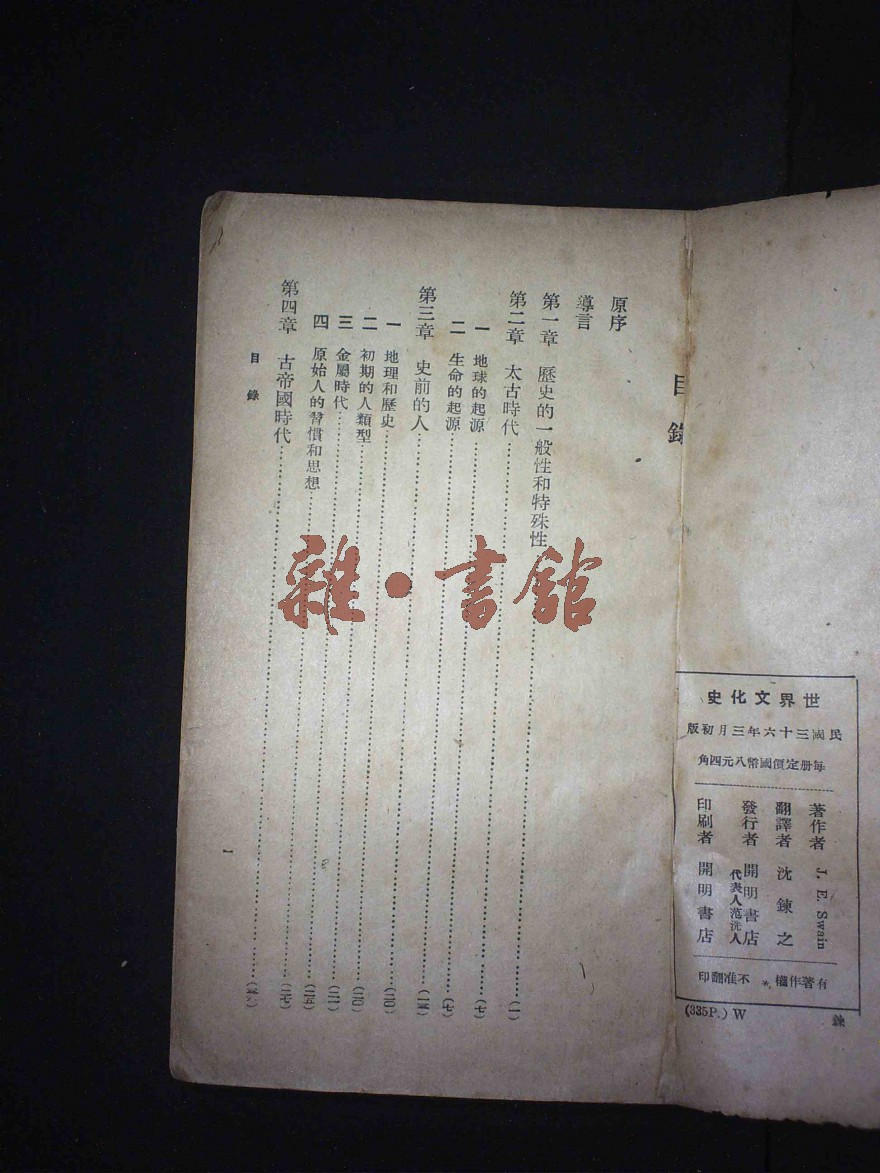 世界文化史
民國三十六年三月初版
每册定價國幣八元四角
著作者 J. E. Swain
翻譯者 沈鍊之
發行者 開明書店
代表人范洗人
印刷者 開明書店
有著作權*不准翻印
(335P.) W
鍊
目錄
原序
導言
第一章 歷史的一般性和特殊性……(一)
第二章 太古時代……(七)
一 地球的起源……(七)
二 生命的起源
第三章 史前的人
一 地理和歷史
二 初期的人類型
三 金屬時代
四 原始人的習慣和思想
第四章 古帝國時代
目錄
一
雜·書館